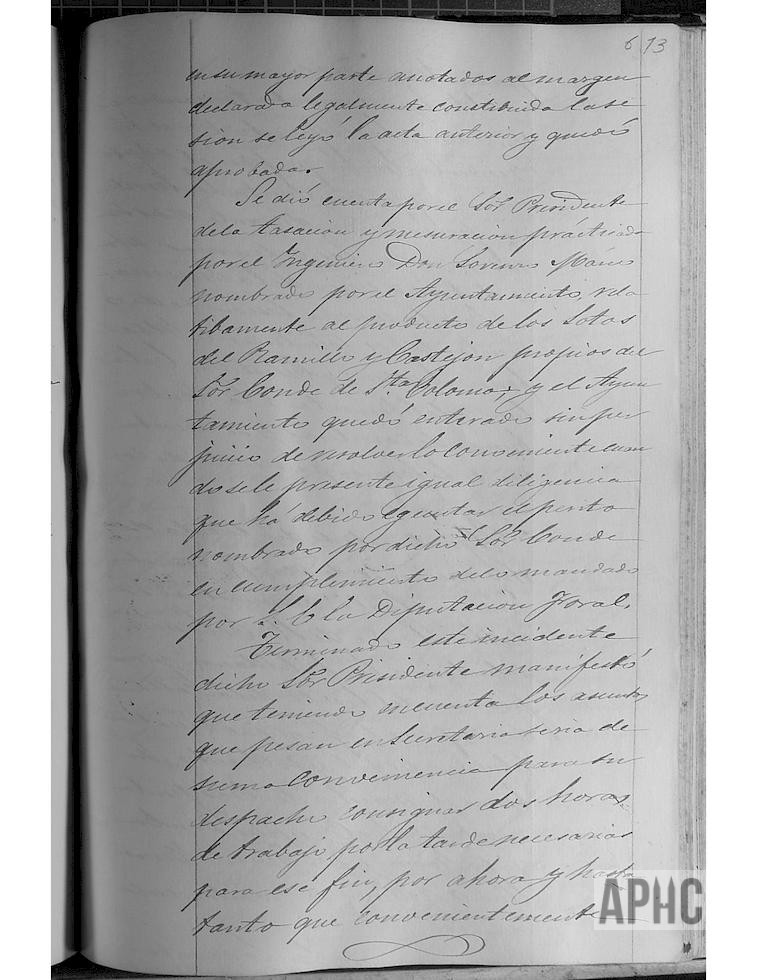 6 73
en su mayor parte anotados al margen
declarada legalmente constituida la se
sion se leyó la acta anterior y quedó
aprobada.
Se dió cuenta por el Sor Presidente
de la tasacion y mesuracion practicada
por el Ingeniero Don Lorenzo
nombrado por el Ayuntamiento, rela
tibamente al producto de los Sotos
del Ramillo y Castejon propios del
Sor Conde de Sta Coloma, y el Ayun
tamiento quedó enterado sin per
juicio de resolver lo conveniente cuan
do se le presente igual diligencia
que há debido egecutar el perito
nombrado por dicho Sor Conde
en cumplimiento de lo mandado
por S. E. la Diputacion Foral.
Terminado este incidente
dicho Sor Presidente manifestó
que teniendo en cuenta los asuntos
que pesan en Secretaria seria de
suma conveniencia para su
despacho consignar dos horas
de trabajo por la tarde necesarias
para ese fin, por ahora y hasta
tanto que convenientemente
APHC